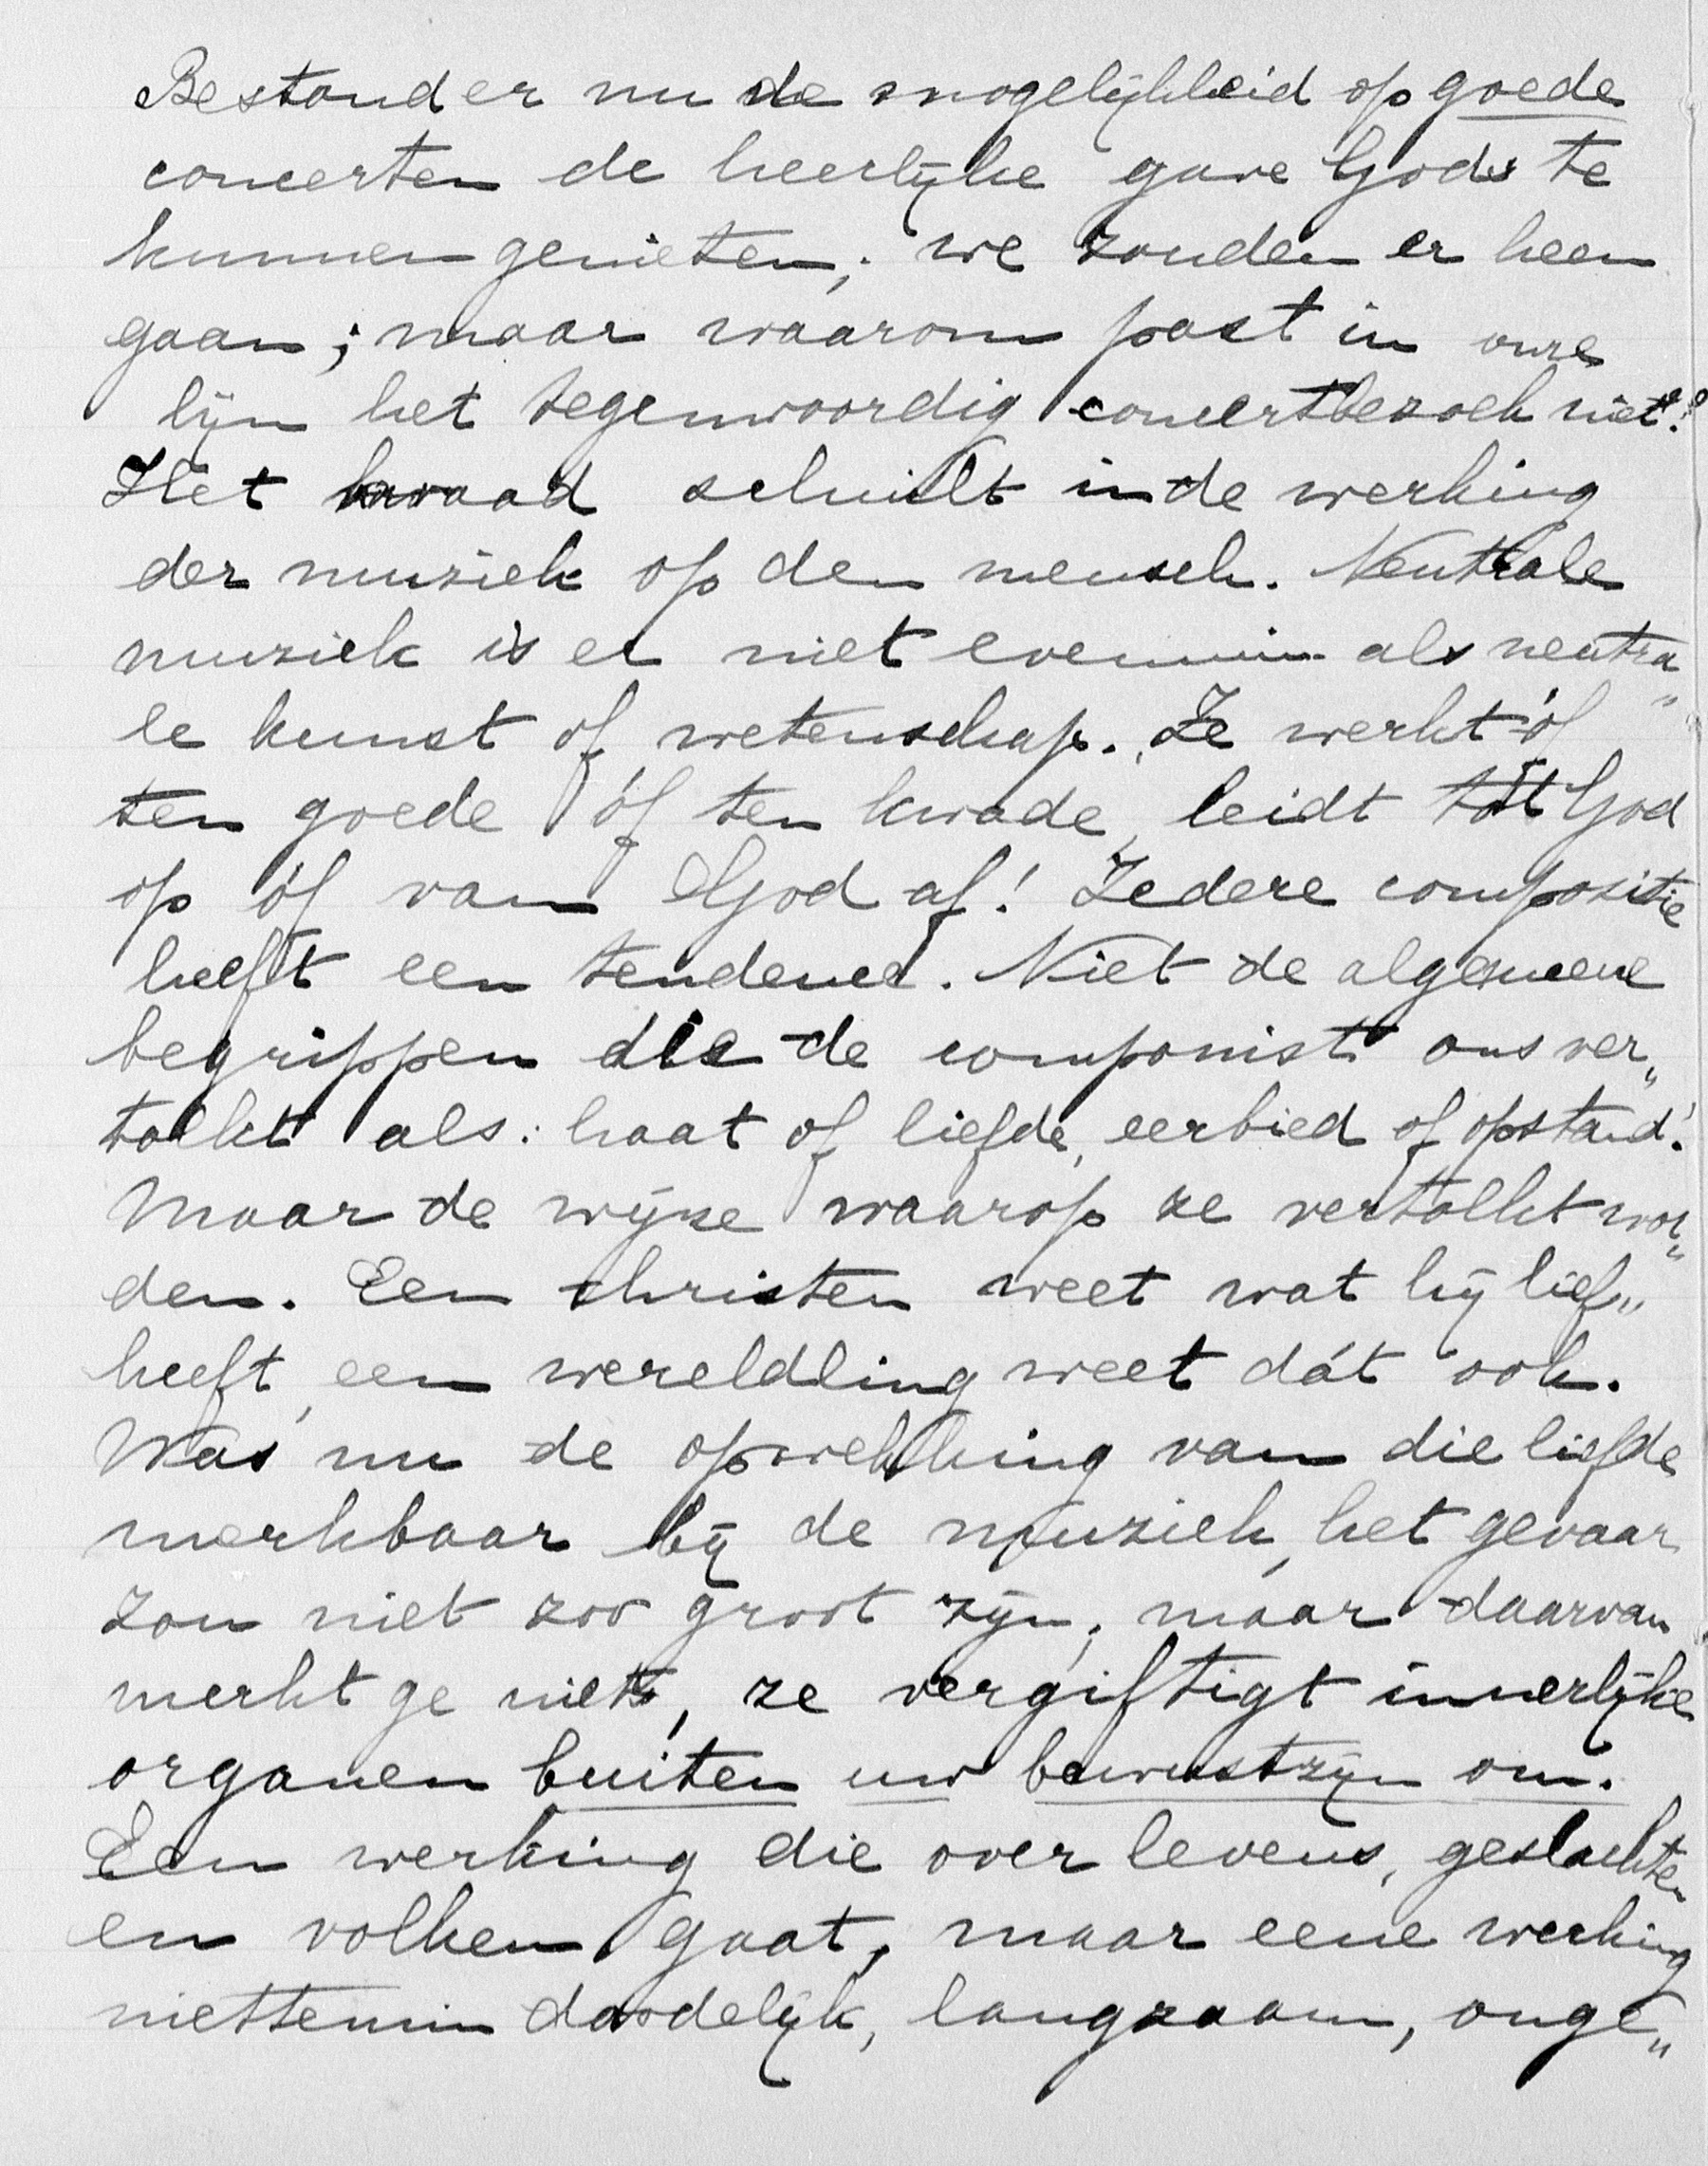 Bestond er nu de mogelijkheid op goede
concerten de heerlijke gave Gods te
kunnen genieten; we zouden er heen
gaan; maar waarom past in onze
lijn het tegenwoordig concertbezoek niet?
Het kwaad schuilt in de werking
der muziek op den mensch. Neutrale
muziek is er niet evenmin als neutra„
le kunst of wetenschap. Ze werkt óf
ten goede óf ten kwade, leidt tót God
op óf van God af! Iedere compositie
heeft een tendence. Niet de algemeene
begrippen die de componist ons ver„
tolkt als: haat of liefde, eerbied of opstand!
Maar de wijze waarop ze vertolkt wor„
den. Een christen weet wat hij lief„
heeft, een wereldling weet dát ook.
Was nu de opwekking van die liefde
merkbaar bij de muziek, het gevaar
zou niet zoo groot zijn; maar daarvan
merkt ge niets, ze vergiftigt innerlijke
organen buiten uw bewustzijn om.
Een werking die over levens, geslachten
en volken gaat, maar eene werking
niettemin doodelijk, langzaam, onge„